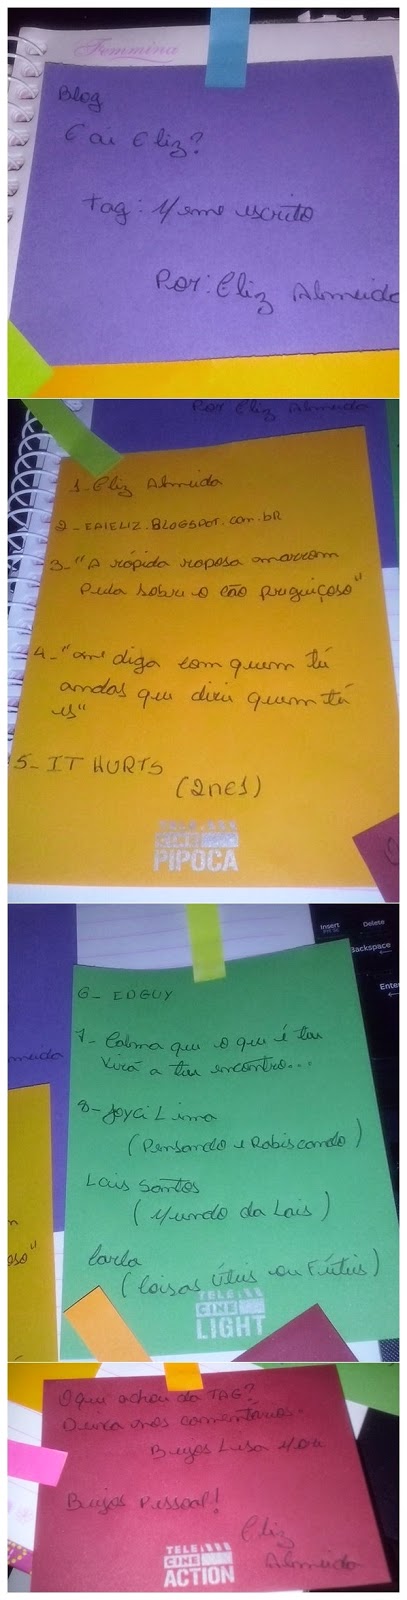 Femmina
Blog
E aí Eliz?
Tag: Meme escrito
Por: Eliz Almeida
Por Eliz Almeida
1- Eliz Almeida
2- EAIELIZ.BLOGSPOT.COM.BR
3- "A rápida raposa marrom
pula sobre o cão preguiçoso"
4- "me diga com quem tú
andas que direi quem tú
és"
5- IT HURTS
(2NE1)
TELECINE
PIPOCA
Insert
Delete
Backspace
Enter
6- EDGUY
7- Calma que o que é teu
virá a teu encontro...
8- Joyci Lima
(Pensando e Rabiscando)
Lais Santos
(Mundo da Lais)
Carla
(Coisas Úteis ou Fúteis)
TELE
CINE
LIGHT
O que achou da TAG?
Deixa nos comentários.
Beijos Lisa
Beijos Pessoal!
Eliz
Almeida
TELE
CINE
ACTION